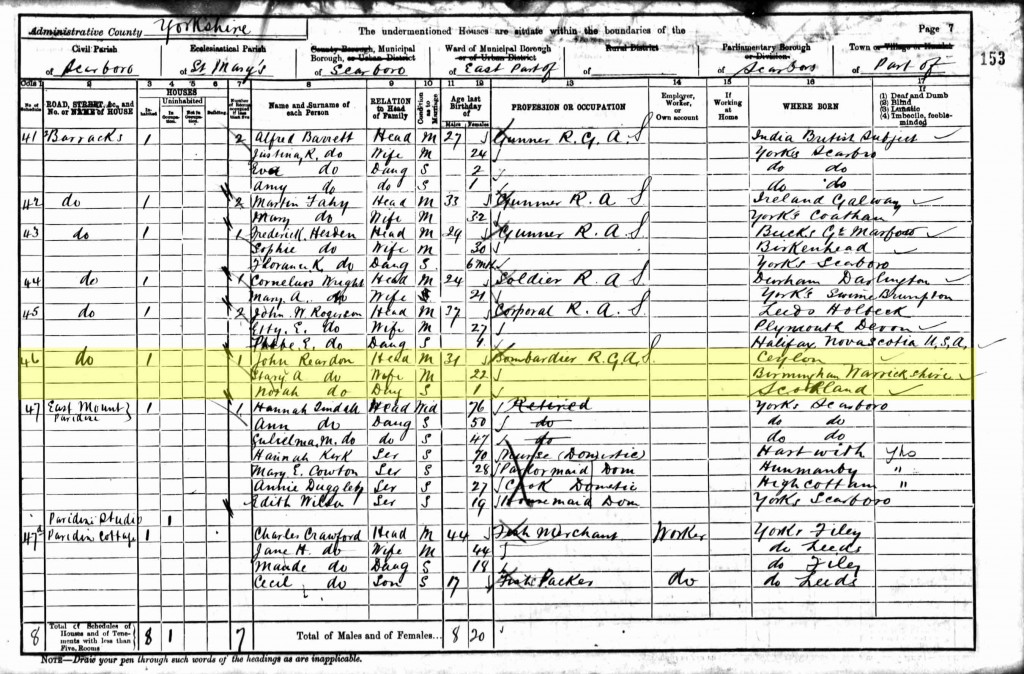 Administrative County Yorkshire The undermentioned Houses are situate within the boundaries of the Page 7
153
Civil Parish of Scarboro
Ecclesiastical Parish of St Mary's
County Borough, Municipal Borough, or Urban District of Scarboro
Ward of Municipal Borough or of Urban District of East Part of
Rural District of
Parliamentary Borough or Division of Scarboro
Town or Village or Hamlet of Part of
Cols. 1 2 3 4 5 6 7 8 9 10 11 12 13 14 15 16 17
ROAD, STREET, &c., and No. or NAME of HOUSE
HOUSES Inhabited Uninhabited In Occupation Not in Occupation Building
Name and Surname of each Person
RELATION to Head of Family
Condition as to Marriage
Age last Birthday of Males Females
PROFESSION OR OCCUPATION
Employer, Worker, or Own account
If Working at Home
WHERE BORN
If (1) Deaf and Dumb (2) Blind (3) Lunatic (4) Imbecile, feeble-minded
41 Barracks 1 2 Alfred Barrett Head M 27 Gunner R.G.A. S India British Subject
Justina, R. do Wife M 24 Yorks Scarbro
do Daug S 2 do do
Amy do do S 1 do do
42 do 1 2 Martin Fahy Head M 33 Gunner R.A S Ireland Galway
Mary do Wife M 32 Yorks Coatham
43 do 1 1 Frederick Head M 29 Gunner R.A S Bucks Gt
Sophie do Wife M 30 Birkenhead
K do Daug S 6 mth Yorks Scarboro
44 do 1 1 Cornelius Wright Head M 24 Soldier R.A S Durham Darlington
Mary A. do Wife 21 Yorks
45 do 1 2 John W Rogerson Head M 37 Corporal R.A. S Leeds Holbeck
Etty. E. do Wife M 27 Plymouth Devon
E. do Daug S 4 Halifax Nova Scotia U.S.A.
46 do 1 1 John Reardon Head M 31 Bombardier R.G.A. S Ceylon
A do Wife M 22 Birmingham Warrickshire
Norah do Daug S 1 Scotland
47 East Mount Paridini 1 1 Hannah Head Wid 76 Retired Yorks Scarboro
Ann do Daug S 50 do do do
M. do do S 47 do do do
Hannah Kirk Ser S 70 Nurse (Domestic) Hartwith Yks
Mary E. Cowton Ser S 28 Parlormaid Dom Hunmanby "
Annie Duggleby Ser S 27 Cook Domestic "
Edith Wilson Ser S 19 Housemaid Dom Yorks Scarboro
Paridini Studio 1
47a Paridini Cottage 1 Charles Crawford Head M 44 Fish Merchant Worker Yorks Filey
Jane H. do Wife M 44 do Leeds
Maude do Daug S 18 do Filey
Cecil do Son S 17 Fish Packer do do Leeds
8 Total of Schedules of Houses and of Tenements with less than Five Rooms 8 1 7 Total of Males and of Females... 8 20
NOTE—Draw your pen through such words of the headings as are inapplicable.